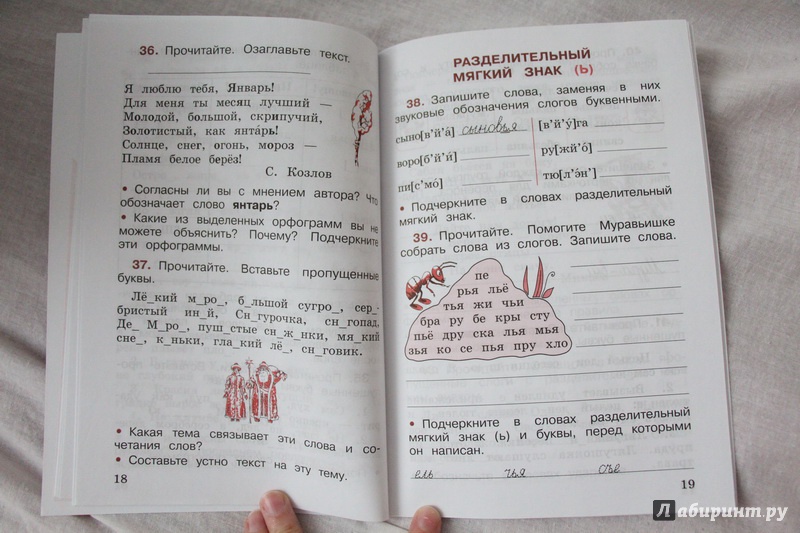 36. Прочитайте. Озаглавьте текст.
Я люблю тебя, Январь!
Для меня ты месяц лучший —
Молодой, большой, скрипучий,
Золотистый, как янтарь!
Солнце, снег, огонь, мороз —
Пламя белое берёз!
С. Козлов
• Согласны ли вы с мнением автора? Что
обозначает слово янтарь?
• Какие из выделенных орфограмм вы не
можете объяснить? Почему? Подчеркните
эти орфограммы.
37. Прочитайте. Вставьте пропущенные
буквы.
Лё_кий м_ро_, б_льшой сугро_, сер-
бристый ин_й, Сн_гурочка, сн_гопад,
Де_ М_ро_, пуш_стые сн_ж_нки, мя_кий
сне_, к_ньки, гла_кий лё_, сн_говик.
• Какая тема связывает эти слова и со-
четания слов?
• Составьте устно текст на эту тему.
18
РАЗДЕЛИТЕЛЬНЫЙ
МЯГКИЙ ЗНАК (Ь)
38. Запишите слова, заменяя в них
звуковые обозначения слогов буквенными.
сыно[в'й'а́] сыновья [в'й'у́]га
воро[б'й'и́] ру[жй'о́]
пи[с'мо́] тю[л'э́н']
• Подчеркните в словах разделительный
мягкий знак.
39. Прочитайте. Помогите Муравьишке
собрать слова из слогов. Запишите слова.
пе
рья льё
тья жи чьи
бра ру бе кры сту
пьё дру ска лья мья
зья ко се пья пру хло
• Подчеркните в словах разделительный
мягкий знак (ь) и буквы, перед которыми
он написан.
19
Лабиринт.ру